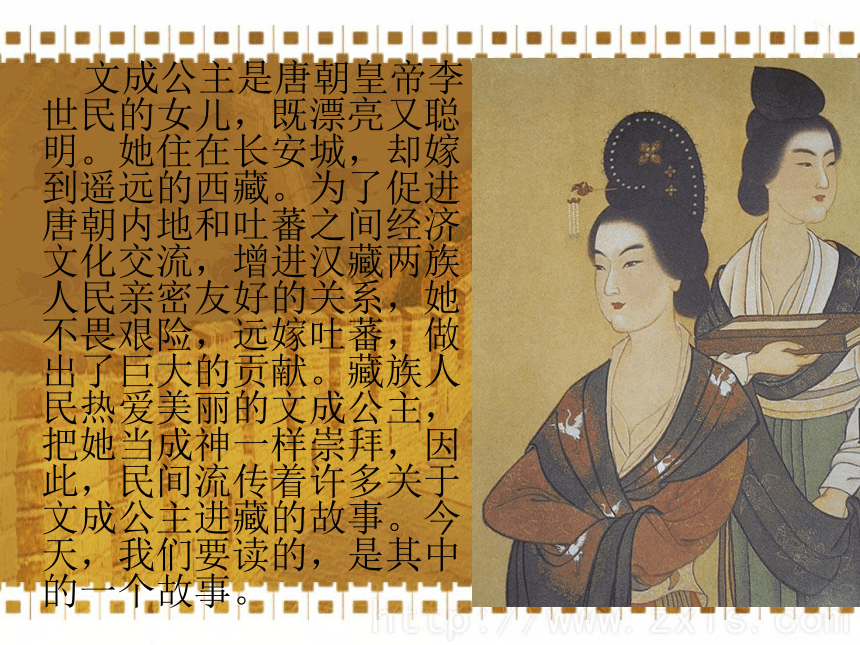 文成公主是唐朝皇帝李
世民的女儿，既漂亮又聪
明。她住在长安城，却嫁
到遥远的西藏。为了促进
唐朝内地和吐蕃之间经济
文化交流，增进汉藏两族
人民亲密友好的关系，她
不畏艰险，远嫁吐蕃，做
出了巨大的贡献。藏族人
民热爱美丽的文成公主，
把她当成神一样崇拜，因
此，民间流传着许多关于
文成公主进藏的故事。今
天，我们要读的，是其中
的一个故事。
http://www.zxls.com